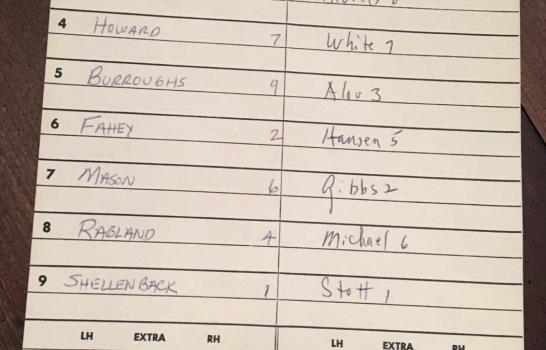 4 HOWARD 7 White 7
5 BURROUGHS 9 Alou 3
6 FAHEY 2 Hansen 5
7 MASON 6 Gibbs 2
8 RAGLAND 4 Michael 6
9 SHELLENBACK 1 Stott 1
LH EXTRA RH LH EXTRA RH